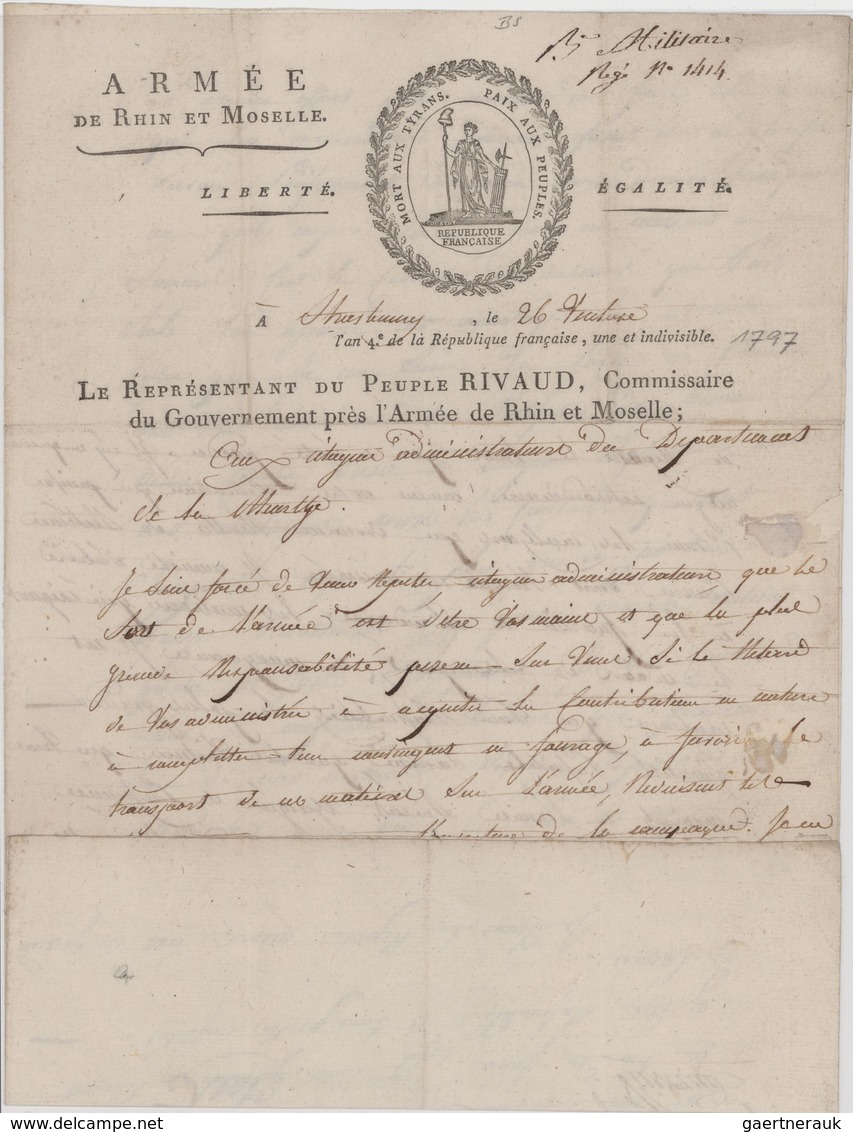 BS
Bau Militaire
Regé No 1414.
ARMÉE
DE RHIN ET MOSELLE.
MORT AUX TYRANS. PAIX AUX PEUPLES.
REPUBLIQUE
FRANÇAISE
LIBERTÉ.
ÉGALITÉ.
À Strasbourg, le 26 Ventose
l'an 4.e de la République française, une et indivisible.
1797
LE REPRÉSENTANT DU PEUPLE RIVAUD, Commissaire
du Gouvernement près l'Armée de Rhin et Moselle;
Aux citoyens administrateurs du Département
de la Meurthe.
Je suis forcé de vous répéter, citoyens administrateurs, que le
sort de l'armée est dans vos mains et que la plus
grande responsabilité pesera sur vous si le retard
de vos administrés à acquitter la contribution en nature
à completter leur contingent en fourage, à favoriser le
transport de ces matieres sur l'armée,
de la campagne. Je ne
delcampe.net
gaertnerauk